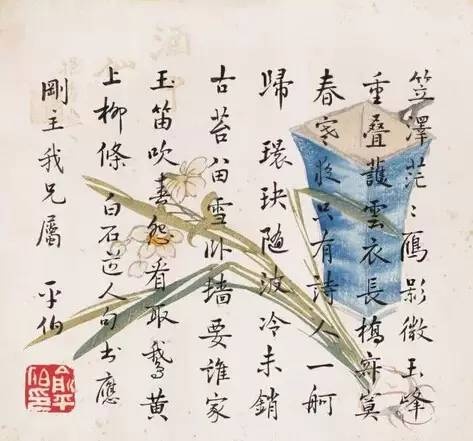 笠澤茫〻鴈影微玉峰
重疊護雲衣長橋寂寞
春寒夜只有詩人一舸
歸 環玦隨波冷未銷
古苔留雪卧墻要誰家
玉笛吹春怨看取鵞黃
上柳條 白石道人句书應
剛主我兄屬 平伯
俞平伯印